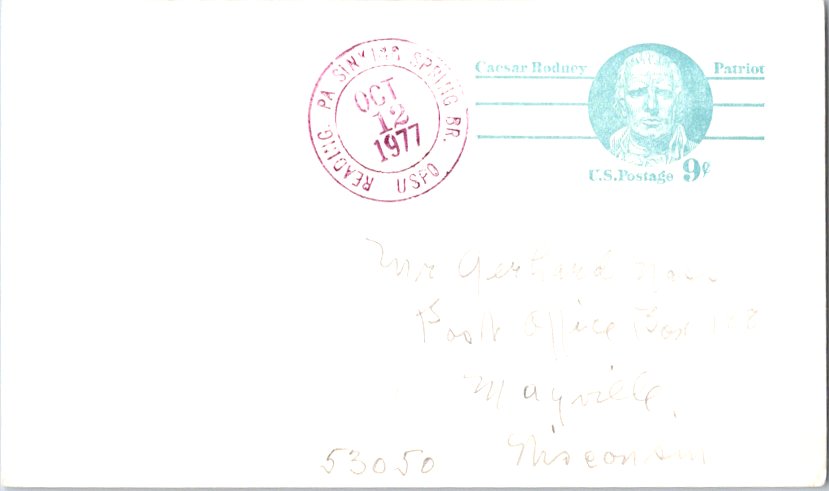 Caesar Rodney Patriot
U.S. Postage 9¢
READING, PA SINKING SPRING BR. USPO
OCT
12
1977
Mr Gerhard
Post Office Box
Mayville,
53050 Wisconsin